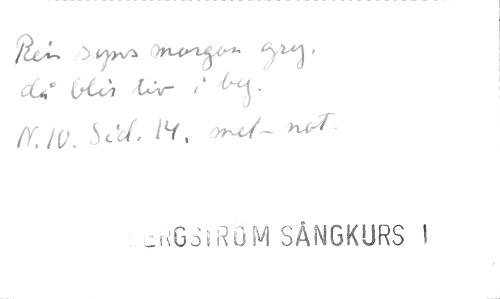 Ren syns morgon gry.
då blir liv i by.
N.10. Sid. 14. mel- not.
BERGSTRÖM SÅNGKURS I